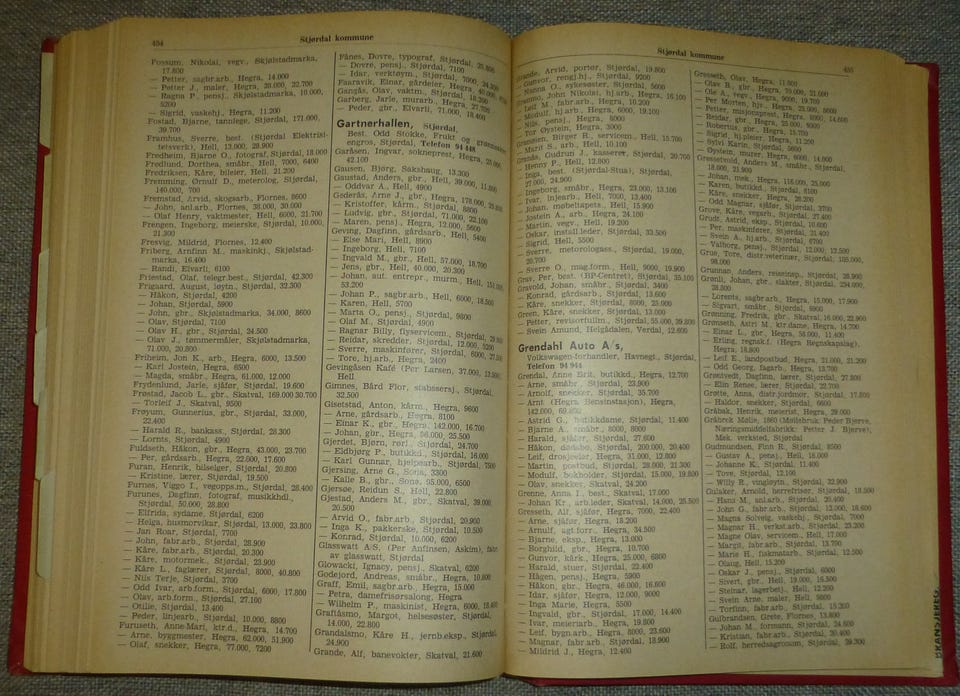 454
Stjørdal kommune
Fossum, Nikolai, vegv., Skjølstadmarka,
17.800
— Petter, sagbr.arb., Hegra, 14.000
— Petter J., maler, Hegra, 20.000, 32.700
— Ragna P., pensj., Skjølstadmarka, 10.000,
5200
— Sigrid, vaskehj., Hegra, 11.200
Fostad, Bjarne, tannlege, Stjørdal, 171.000,
39.700
Framhus, Sverre, best. (Stjørdal Elektrisi-
tetsverk), Hell, 13.000, 28.900
Fredheim, Bjarne O., fotograf, Stjørdal, 18.000
Fredlund, Dorthea, småbr., Hell, 7000, 6400
Fredriksen, Kåre, bileier, Hell, 21.200
Fremming, Ørnulf D., meterolog, Stjørdal,
140.000, 700
Fremstad, Arvid, skogsarb., Flornes, 8600
— John, anl.arb., Flornes, 38.000, 30.000
— Olaf Henry, vaktmester, Hell, 6000, 21.700
Frengen, Ingeborg, meierske, Stjørdal, 10.000,
21.300
Fresvig, Mildrid, Flornes, 12.400
Friberg, Arnfinn M., maskinkj., Skjølstad-
marka, 16.400
— Randi, Elvarli, 6100
Friestad, Olaf, telegr.best., Stjørdal, 42.300
Frigaard, August, løytn., Stjørdal, 32.300
— Håkon, Stjørdal, 4200
— Johan, Stjørdal, 5900
— John, gbr., Skjølstadmarka, 34.000, 8600
— Olav, Stjørdal, 7100
— Olav H., gbr., Stjørdal, 24.500
— Olav J., tømmermåler, Skjølstadmarka,
71.000, 20.800
Friheim, Jon K., arb., Hegra, 6000, 13.500
— Karl Jostein, Hegra, 6500
— Magda, småbr., Hegra, 61.000, 12.000
Frydenlund, Jarle, sjåfør, Stjørdal, 19.600
Frøstad, Jacob L., gbr., Skatval, 169.000 30.700
— Torleif J., Skatval, 9500
Frøyum, Gunnerius, gbr., Stjørdal, 33.000,
22.400
— Harald R., bankass., Stjørdal, 28.300
— Lornts, Stjørdal, 4900
Fuldseth, Håkon, gbr., Hegra, 43.000, 23.700
— Per, gårdsarb., Hegra, 22.000, 17.600
Furan, Henrik, bilselger, Stjørdal, 20.800
— Kristine, lærer, Stjørdal, 19.500
Furnes, Viggo I., vegopps.m., Stjørdal, 28.400
Furunes, Dagfinn, fotograf, musikkhdl.,
Stjørdal, 50.000, 28.800
— Elfrida, sydame, Stjørdal, 6200
— Helga, husmorvikar, Stjørdal, 13.000, 23.800
— Jan Roar, Stjørdal, 7700
— John, fabr.arb., Stjørdal, 28.900
— Kåre, fabr.arb., Stjørdal, 20.300
— Kåre, motormek., Stjørdal, 23.900
— Kåre L., faglærer, Stjørdal, 8000, 40.800
— Nils Terje, Stjørdal, 3700
— Odd Ivar, arb.form., Stjørdal, 6000, 17.800
— Olav, arb.form., Stjørdal, 27.100
— Otilie, Stjørdal, 13.400
— Peder, linjearb., Stjørdal, 10.000, 8800
Furuseth, Anne-Mari, ktr.d., Hegra, 14.700
— Arne, byggmester, Hegra, 62.000, 51.900
— Olaf, snekker, Hegra, 77.000, 7200
Fånes, Dovre, typograf, Stjørdal,
— Dovre, pensj., Stjørdal, 7100
— Idar, verktøym., Stjørdal, 7000,
Faaravik, Einar, gårdeier, Hegra,
Gangås, Olav, vaktm., Stjørdal,
Garberg, Jarle, murarb., Hegra,
— Peder, gbr., Elvarli, 71.000, 18.400
Gartnerhallen, Stjørdal,
Best. Odd Stokke, Frukt og
engros, Stjørdal, Telefon 94 448
Garåsen, Ingvar, sokneprest, Hegra,
42.100
Gausen, Bjørg, Saksbaug, 13.300
Gaustad, Anders, gbr., Hell, 39.000,
— Oddvar A., Hell, 4900
Gederås, Arne J., gbr., Hegra, 178.000,
— Kristoffer, kårm., Stjørdal, 8600
— Ludvig, gbr., Stjørdal, 71.000, 22.100
— Maren, pensj., Hegra, 12.000, 5600
Geving, Dagfinn, gårdsarb., Hell, 5400
— Else Mari, Hell, 8900
— Ingeborg, Hell, 7100
— Ingvald M., gbr., Hell, 57.000, 18.700
— Jens, gbr., Hell, 40.000, 20.300
— Johan, aut. entrepr., murm., Hell,
53.200
— Johan P., sagbr.arb., Hell, 6000, 18.500
— Karen, Hell, 5700
— Marta O., pensj., Stjørdal, 9800
— Olaf M., Stjørdal, 4900
— Ragnar Billy, flyservicem., Stjørdal,
— Reidar, skredder, Stjørdal, 12.000, 9200
— Sverre, maskinfører, Stjørdal, 6000,
— Tore, hj.arb., Hegra, 2400
Gevingåsen Kafé (Per Larsen, 37.000,
Hell
Gimnes, Bård Flor, stabssersj., Stjørdal,
32.500
Gisetstad, Anton, kårm., Hegra, 9600
— Arne, gårdsarb., Hegra, 8100
— Einar K., gbr., Hegra, 142.000, 16.700
— Johan, gbr., Hegra, 56.000, 25.500
Gjerdet, Bjørn, rør l., Stjørdal, 24.700
— Eldbjørg P., butikkd., Stjørdal, 16.000
— Karl Gunnar, hjelpearb., Stjørdal,
Gjersing, Arne G., Sona, 3300
— Kalle B., gbr., Sona, 95.000, 6500
Gjersøe, Reidun S., Hell, 22.800
Gjestad, Anders M., gbr., Skatval, 39.000,
20.500
— Arvid O., fabr.arb., Stjørdal, 20.900
— Inga K., pakkerske, Stjørdal, 10.500
— Konrad, Stjørdal, 10.000, 6200
Glasswatt A/S, (Per Anfinsen, Askim),
av glasswatt, Stjørdal
Glowacki, Ignacy, pensj., Skatval, 6200
Godejord, Andreas, småbr., Hegra, 10.800
Graff, Emil, sagbr.arb., Hegra, 15.000
— Petra, damefrisørsalong, Hegra
— Wilhelm P., maskinist, Hegra, 6000,
Graftåsmo, Margot, helsesøster, Stjørdal,
14.000, 22.800
Grandalsmo, Kåre H., jernb.eksp., Stjørdal,
24.900
Grande, Alf, banevokter, Skatval, 21.600
Stjørdal kommune
455
Grande, Arvid, portør, Stjørdal, 19.800
— Gunvor, rengj.hj., Stjørdal, 9200
— Nanna O., sykesøster, Stjørdal, 5600
John Nikolai, hj.arb., Hegra, 16.100
— Leif M., fabr.arb., Hegra, 10.200
— Modulf, hj.arb., Hegra, 6000, 19.100
— Nils, pensj., Hegra, 8000
— Tor Øystein, Hegra, 3000
Birger R., servicem., Hell, 15.700
— Marit S., arb., Hell, 10.100
Gudrun J., kasserer, Stjørdal, 20.700
— Henry P., Hell, 12.800
— Inga, best. (Stjørdal-Stua), Stjørdal,
27.000, 24.900
— Ingeborg, småbr., Hegra, 23.000, 13.100
— Ivar, linjearb., Hell, 7000, 13.400
— Johan, møbeltapets., Hell, 15.900
— Jostein A., arb., Hegra, 24.100
— Martin, vegv., Hegra, 19.200
— Oskar, install.leder, Stjørdal, 33.500
— Sigrid, Hell, 5500
— Sverre, meteorologass., Stjørdal, 19.000,
20.700
— Sverre O., mag.form., Hell, 9000, 19.900
Grav, Per, best. (BP-Centret), Stjørdal, 35.100
Gravold, Johan, småbr., Stjørdal, 3400
— Konrad, gårdsarb., Stjørdal, 13.600
— Kåre, snekker, Stjørdal, 8000, 25.000
Green, Kåre, snekker, Stjørdal, 13.000
— Petter, revisorfullm., Stjørdal, 55.000, 39.800
— Svein Amund, Helgådalen, Verdal, 12.600
Grendahl Auto A/s,
Volkswagen-forhandler, Havnegt., Stjørdal,
Telefon 94 944
Grendal, Anne Brit, butikkd., Hegra, 12.700
— Arne, småbr., Stjørdal, 23.900
— Arnolf, snekker, Stjørdal, 35.700
— Arnt (Hegra Bensinstasjon), Hegra,
142.000, 69.800
— Astrid G., butikkdame, Stjørdal, 11.400
— Bjarne A., småbr., 8000, 8000
— Harald, sjåfør, Stjørdal, 27.600
— Håkon, dørfabr., Stjørdal, 200.000, 20.400
— Leif, drosjeeier, Hegra, 31.000, 12.800
— Martin, postbud, Stjørdal, 28.000, 21.300
— Modulf, bokholder, Stjørdal, 15.000, 19.800
— Olav, snekker, Skatval, 24.200
Grenne, Anna I., best., Skatval, 17.000
— Johan Kr., arb.leder, Skatval, 14.000, 25.500
Gresseth, Alf, sjåfør, Hegra, 7000, 22.400
— Arne, sjåfør, Hegra, 18.200
— Arnulf, agt.forr., Hegra, 34.500
— Bjarne, eksp., Hegra, 13.000
— Borghild, gbr., Hegra, 10.700
— Gunvor, kårk., Hegra, 25.000, 6800
— Harald, stuer, Stjørdal, 22.400
— Hågen, pensj., Hegra, 5900
— Håkon, gbr., Hegra, 46.000, 16.600
— Idar, sjåfør, Hegra, 12.000, 9000
— Inga Marie, Hegra, 5500
— Ingvald, gbr., Stjørdal, 17.000, 14.400
— Ivar, meieriarb., Hegra, 19.800
— Leif, bygn.arb., Hegra, 8000, 23.600
— Magnar, fabr.arb., Stjørdal, 18.900
— Mildrid J., Hegra, 12.400
Gresseth, Olav, Hegra, 11.800
— Olav B., gbr., Hegra, 79.000, 21.000
— Ole A., vegv., Hegra, 9000, 19.700
— Per Morten, hjv., Hegra, 23.000, 8600
— Petter, misjonsprest, Hegra, 8000, 14.600
— Reidar, gbr., Hegra, 25.000, 9000
— Robertus, gbr., Hegra, 15.700
— Sigrid, hj.pleier, Hegra, 11.200
— Sylvi Karin, Stjørdal, 9000
— Øystein, murer, Hegra, 6000, 14.000
Gressetvold, Anders M., småbr., Stjørdal,
18.000, 21.900
— Johan, mek., Hegra, 116.000, 25.000
— Karen, butikkd., Stjørdal, 8100
— Kåre, snekker, Hegra, 28.200
— Odd Magnar, sjåfør, Hegra, 3700
Grove, Kåre, vegarb., Stjørdal, 27.400
Grudt, Astrid, eksp., Stjørdal, 10.600
— Per, maskinfører, Stjørdal, 21.400
— Svein A., hj.arb., Stjørdal, 6700
— Valborg, pensj., Stjørdal, 12.000, 12.500
Grue, Tore, distr.veterinær, Stjørdal, 105.000,
98.000
Grunnan, Anders, reiseinsp., Stjørdal, 28.900
Grønli, Johan, gbr., slakter, Stjørdal, 234.000,
38.800
— Lorents, sagbr.arb., Hegra, 15.000, 17.900
— Sigvart, småbr., Stjørdal, 9900
Grønning, Fredrik, gbr., Skatval, 16.000, 22.900
Grønseth, Astri M., ktr.dame, Hegra, 14.700
— Einar L., gbr., Hegra, 56.000, 11.400
— Erling, regnsk.f. (Hegra Regnskapslag),
Hegra, 18.800
— Leif E., landpostbud, Hegra, 21.000, 21.200
— Odd Georg, fagarb., Hegra, 13.700
Grøntvedt, Dagfinn, lærer, Stjørdal, 27.800
— Elin Renee, lærer, Stjørdal, 22.700
Grøtte, Anna, distr.jordmor, Stjørdal, 17.800
— Haldor, snekker, Stjørdal, 6600
Gråbak, Henrik, meierist, Hegra, 29.000
Gråbrek Mølle, 1860 (Møllebruk: Peder Bjerve,
Næringsmiddelfabrikk: Petter J. Bjerve),
Mek. verksted, Stjørdal
Gudmundsen, Finn R., Stjørdal, 8500
— Gustav A., pensj., Hell, 16.000
— Johanne K., Stjørdal, 11.400
— Tove, Stjørdal, 12.100
— Willy R., vingløytn., Stjørdal, 32.900
Gulaker, Arnold, herrefrisør, Stjørdal, 18.500
— Hans M., anl.arb., Stjørdal, 20.400
— John G., fabr.arb., Stjørdal, 12.000, 18.600
— Magna Solveig, vaskehj., Stjørdal, 7000
— Magnar H., verkst.arb., Stjørdal, 23.200
— Magne Olav, servicem., Hell, 17.000
— Margit, fabr.arb., Stjørdal, 13.700
— Marie H., fiskmatarb., Stjørdal, 12.500
— Olaug, Hell, 15.200
— Oskar J., pensj., Stjørdal, 6000
— Sivert, gbr., Hell, 19.000, 16.500
— Steinar, lagerbetj., Hell, 12.200
— Svein Arne, maler, Hell, 9800
— Torfinn, fabr.arb., Stjørdal, 15.200
Gulbrandsen, Grete, Flornes, 13.800
— Johan M., formann, Stjørdal, 24.600
— Kristian, fabr.arb., Stjørdal, 20.400
— Rolf, herredsagronom, Stjørdal, 29.300
BRANSJEREG.